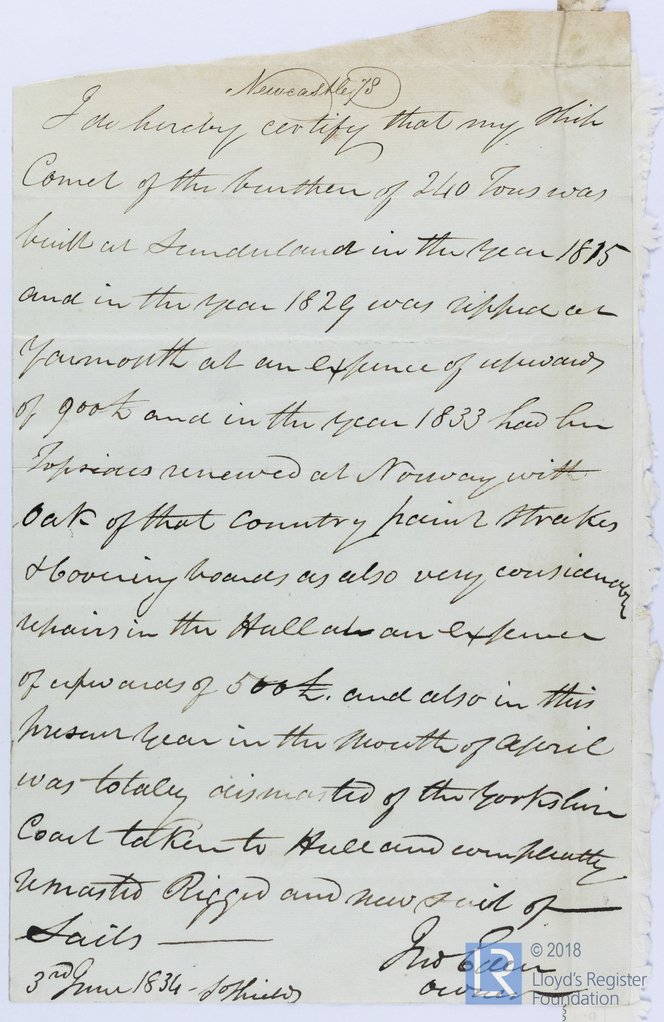 Newcastle 78
I do hereby certify that my Ship
Comet of the burthen of 240 Tons was
built at Sunderland in the Year 1815
and in the year 1829 was ripped at
Yarmouth at an expence of upwards
of 900£ and in the year 1833 had her
Topsides renewed at Norway with
Oak of that Country paint Strakes
& Covering boards as also very considerable
repairs in the Hull at an expence
of upwards of 500£. and also in this
present Year in the Month of April
was totaley dismasted of the Yorkshire
Coast taken to Hull and compleatly
remasted Rigged and new suit of
Sails
Jno Eden
owner
3rd June 1834 - So Shields
© 2018
Lloyd's Register
Foundation
R